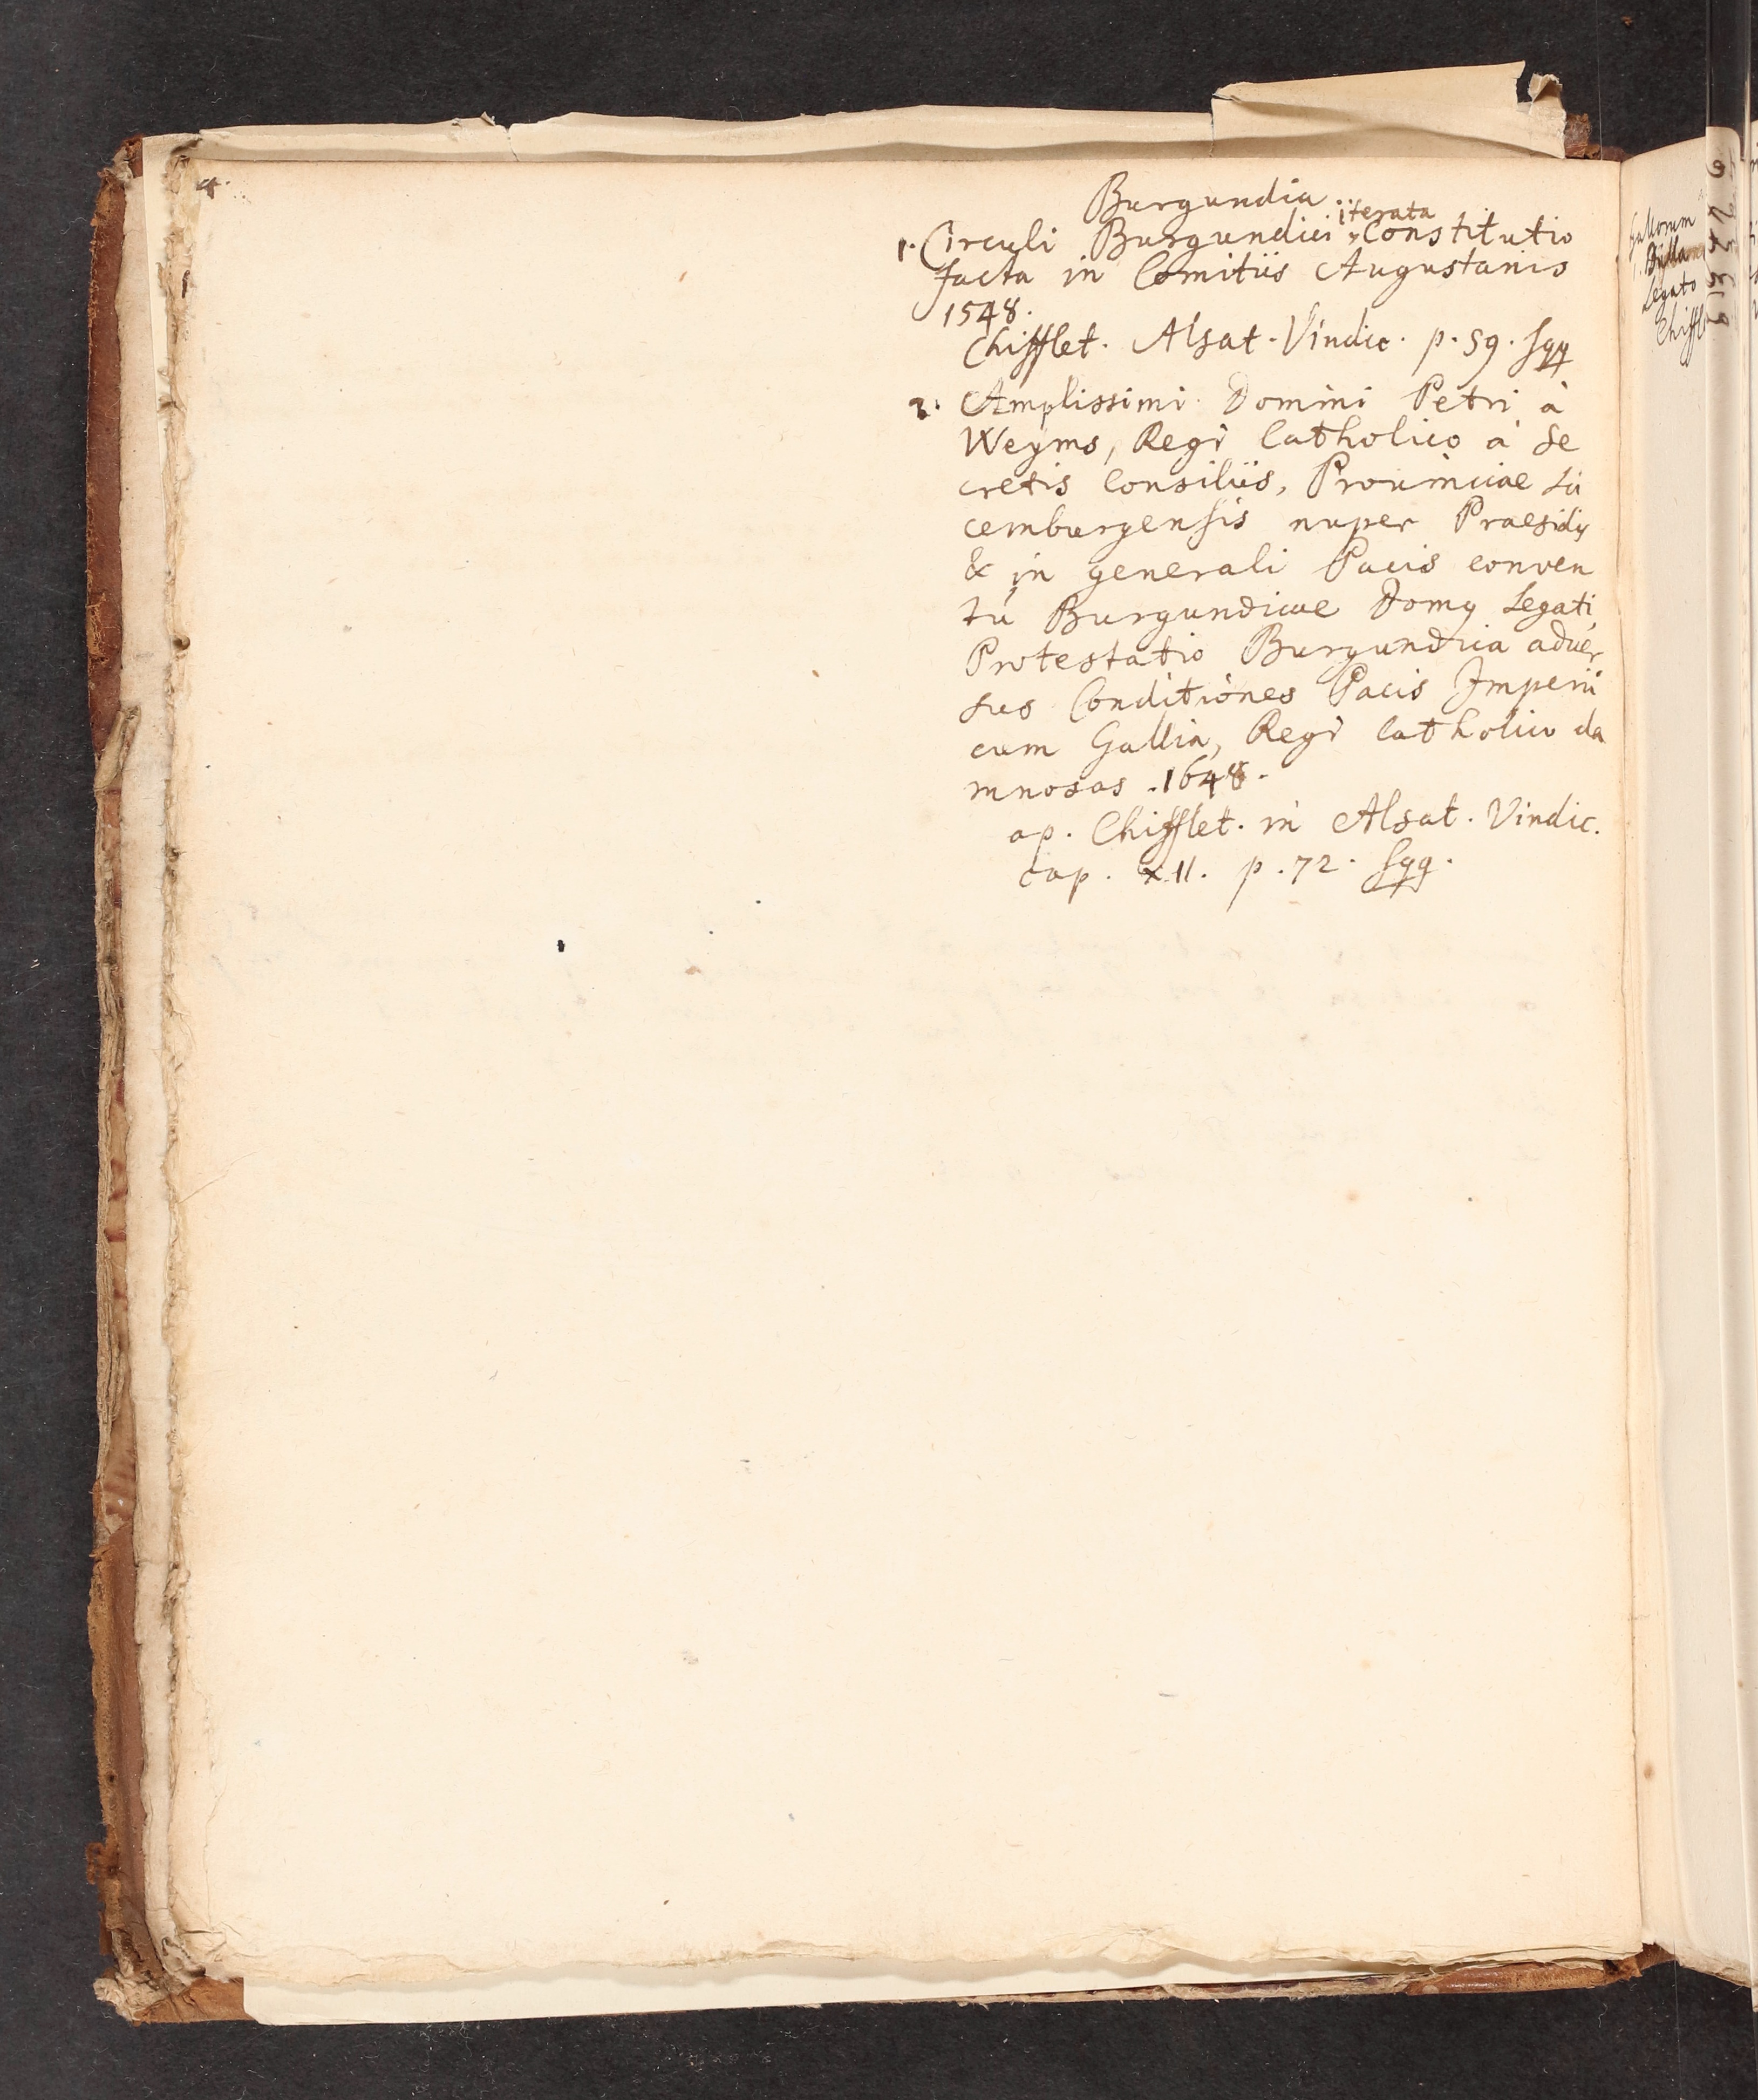 4.
Burgundia.
1. Circuli Burgundici iterata Constitutio
facta in Comitiis Augustanis
1548.
Chifflet. Alsat. Vindic. p. 59. sqq
2. Amplissimi Domini Petri à
Weyms, Regi Catholico à Se
cretis Consiliis, Prouinciae Lu
cemburgensis nuper Praesidis
& in generali Pacis conven
tu Burgundicae Domus Legati
Protestatio Burgundica aduer
sus Conditiones Pacis Imperii
cum Gallia, Regi Catholico da
mnosas. 1648.
ap. Chifflet. in Alsat. Vindic.
cap. XII. p. 72. sqq.
Gallorum
Legato
Chiffl